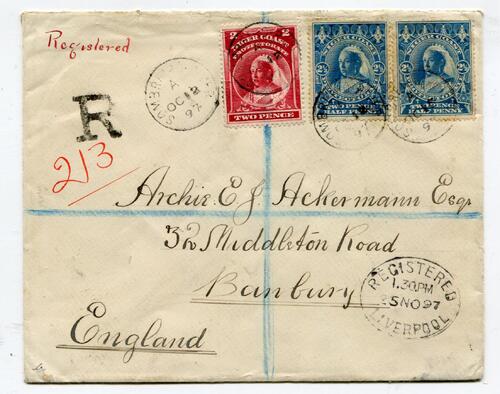 Registered
R
213
2 2
NIGER COAST
PROTECTORATE
TWO PENCE
NIGER COAST
2½ 2½
TWO PENCE
HALF PENNY
NIGER COAST
2½ 2½
TWO PENCE
HALF PENNY
SOMBRE
A
OC 12
97
Archie. E. J. Ackermann Esqr
32 Middleton Road
Banbury
England
REGISTERED
1.30PM
5 NO 97
LIVERPOOL